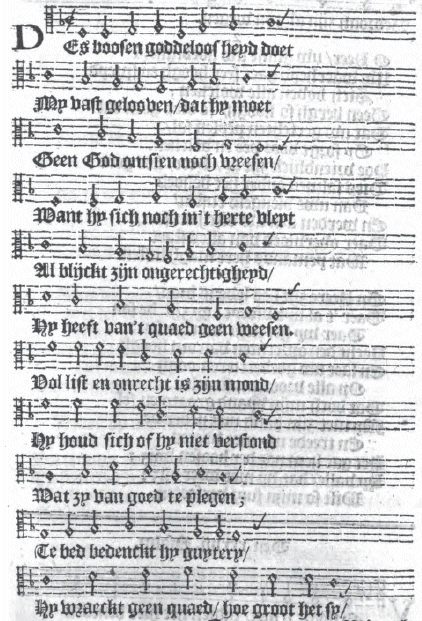 DEs boosen goddeloosheyd doet
My vast gelooven/dat hy moet
Geen God ontsien noch vreesen/
Want hy sich noch in't herte vleyt
Al blijckt zijn ongerechtigheyd/
Hy heeft van't quaed geen weesen.
Vol list en onrecht is zijn mond/
Hy houd sich of hy niet verstond
Wat zy van goed te plegen;
Te bed bedenckt hy guytery/
Hy wraeckt geen quaed/ hoe groot het sy/